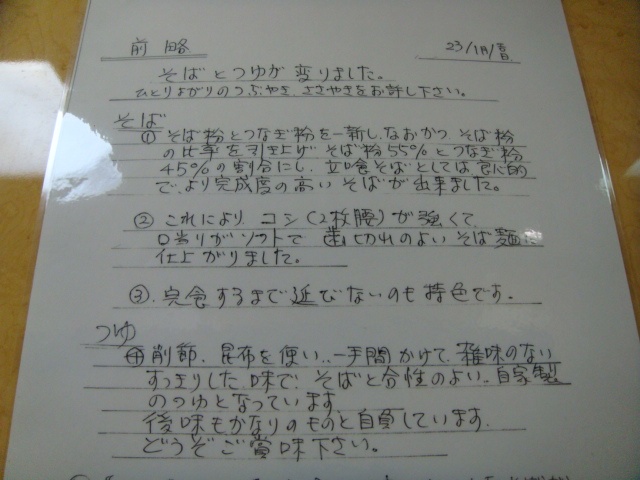 前略
23/1月/吉日
そばとつゆが変りました。
ひとりよがりのつぶやき、ささやきをお許し下さい。
そば
① そば粉とつなぎ粉を一新し、なおかつ、そば粉
の比率を引き上げ そば粉55%とつなぎ粉
45%の割合にし、立喰そばとしては、
で、より完成度の高いそばが出来ました。
② これにより コシ(2枚腰)が強くて、
口当りがソフトで 歯切れのよいそば麺に
仕上がりました。
③. 完食するまで延びないのも特色です。
つゆ
④ 削節、昆布を使い、一手間かけて、雑味のない
すっきりした味で、そばと合性のよい、自家製
のつゆとなっています。
後味もかなりのものと自負しています。
どうぞご賞味下さい。